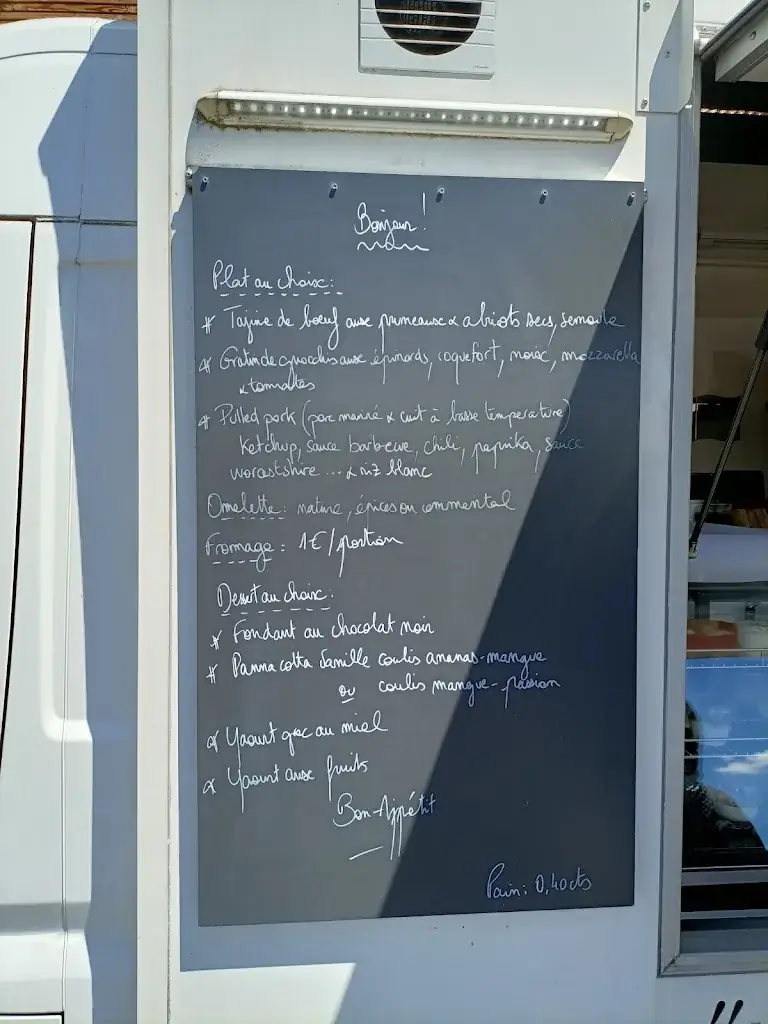 Bonjour !
Plat au choix :
* Tajine de bœuf aux pruneaux & abricots secs, semoule
* Gratin de gnocchis aux épinards, roquefort, noix, mozzarella
& tomates
* Pulled pork (porc mariné & cuit à basse température)
Ketchup, sauce barbecue, chili, paprika, sauce
worcestshire ... & riz blanc
Omelette : nature, épices ou emmental
Fromage : 1€/portion
Dessert au choix :
* Fondant au chocolat noir
* Panna cotta Vanille coulis ananas-mangue
ou coulis mangue-passion
* Yaourt grec au miel
* Yaourt aux fruits
Bon Appétit
Pain : 0,40cts